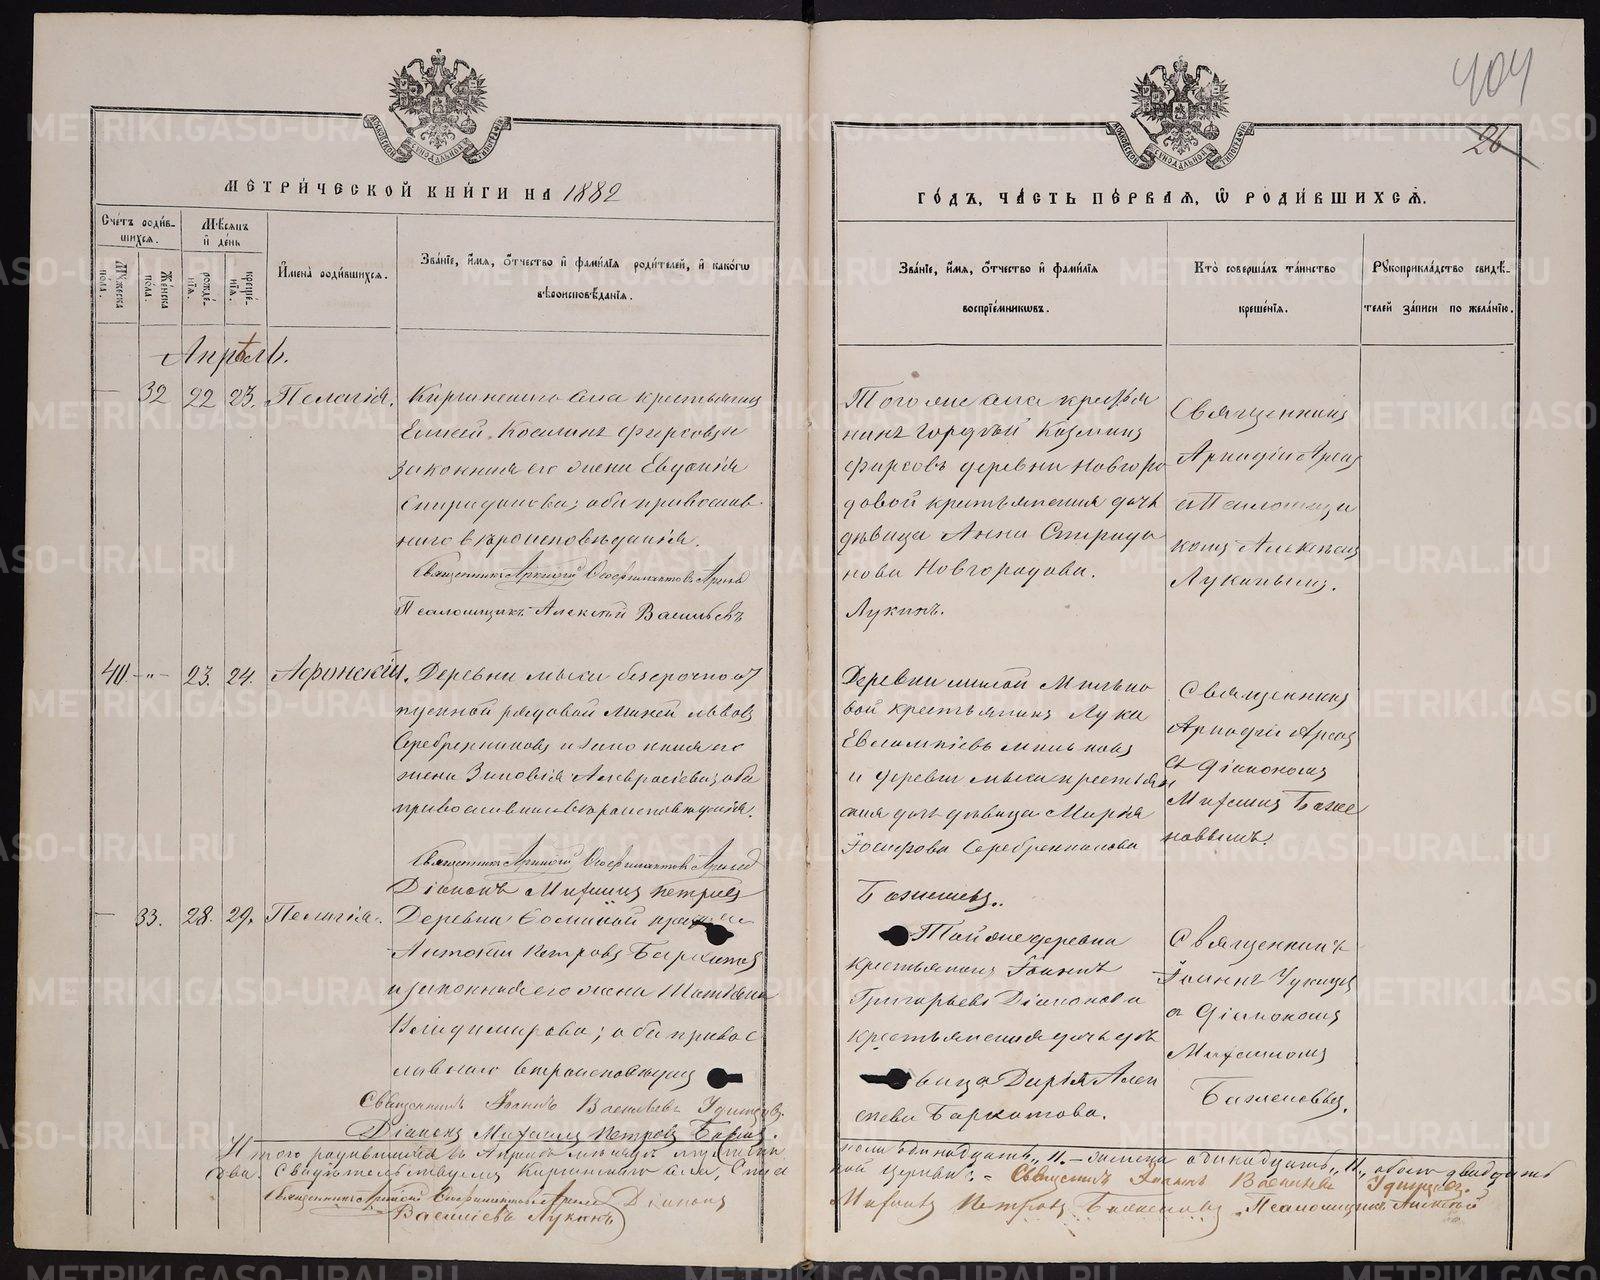 404
26
МЕТРИ́ЧЕСКОЙ КНИ́ГИ НА 1882
ГО́ДЪ, ЧА́СТЬ ПЕ́РВАЯ, Ѿ РОДИ́ВШИХСѦ.
Сче́тъ роди́в-
шихсѧ.
Мѣсяцъ
и҆ де́нь
Мꙋжеска
пола.
Женска
пола.
рожде-
нїя.
креще́-
нїя.
И҆мена̀ роди́вшихсѧ.
Зва́нїе, и҆́мѧ, ѻ҆́тчество и҆ фами́лїѧ роди́телей, и҆ како́гѡ
вѣроисповѣ́данїѧ.
Зва́нїе, и҆́мѧ, ѻ҆́тчество и҆ фами́лїѧ
воспрїе́мникѡвъ.
Кто̀ соверша́лъ та́инство
креще́нїѧ.
Рꙋкоприкла́дство свидѣ́-
телей за́писи по жела́нїю.
Апрѣль.
— 32 22 23. Пелагія.
Киргинскаго села крестьянинъ
Елисей Косминъ Фирсовъ и
законная его жена Евдокія
Спиридонова; оба православ-
наго вѣроисповѣданія.
Священникъ Аркадій Феофилактовъ
Псаломщикъ Алексѣй Васильевъ
Того же села крестья
нинъ Гордѣй Козминъ
Фирсовъ деревни Новгоро
довой крестьянская дочь
дѣвица Анна Спиридо
нова Новгородова.
Лукинъ.
Священникъ
Аркадій
съ Псаломщи
комъ Алексѣемъ
Лукинымъ.
40. -"- 23. 24. Афонскій.
Деревни Мыса безсрочноот
пускной рядовой Мокей Львовъ
Серебренниковъ и законная его
жена Зиновія Амвросіева; оба
православнаго вѣроисповѣданія.
Священникъ Аркадій Феофилактовъ
Діаконъ Михаилъ Петровъ
Деревни Милько
вой крестьянинъ Лука
Евлампіевъ Мильковъ
и деревни Мыса крестьян
ская дочь дѣвица Марія
Іосифова Серебренникова
Баженовъ.
Священникъ
Аркадій
съ Діакономъ
Михаиломъ Баже
новымъ.
— 33. 28. 29. Пелагія.
Деревни
Петровъ Бархатовъ
и законная его жена Татіана
Владимирова; оба правос
лавнаго вѣроисповѣданія
Священникъ Іоаннъ Васильевъ Удинцевъ.
Діаконъ Михаилъ Петровъ Баженовъ.
Той же деревни
крестьянинъ Іоаннъ
Григорьевъ Діаконовъ
крестьянская дочь дѣ
вица Дарья Алек
сѣева Бархатова.
Священникъ
Іоаннъ Удинцевъ
съ Діакономъ
Михаиломъ
Баженовымъ.
Итого родившихся въ Апрѣлѣ мѣсяцѣ мужеска
пола одинадцать "11." — женска одинадцать "11", обоего двадцать
два. Свидѣтельствуемъ Киргинскаго села,
кой церкви: — Священникъ Іоаннъ Васильевъ Удинцевъ.
Священникъ Аркадій Феофилактовъ Діаконъ
Михаилъ Петровъ Баженовъ Псаломщикъ Алексѣй
Васильевъ Лукинъ
METRIKI.GASO-URAL.RU